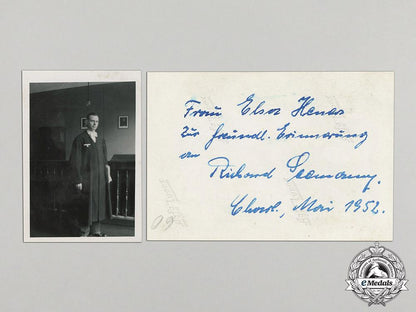 Frau Elsa Henas
zur freundl. Erinnerung
an
Richard Seemann,
Charl., Mai 1952.
eMedals